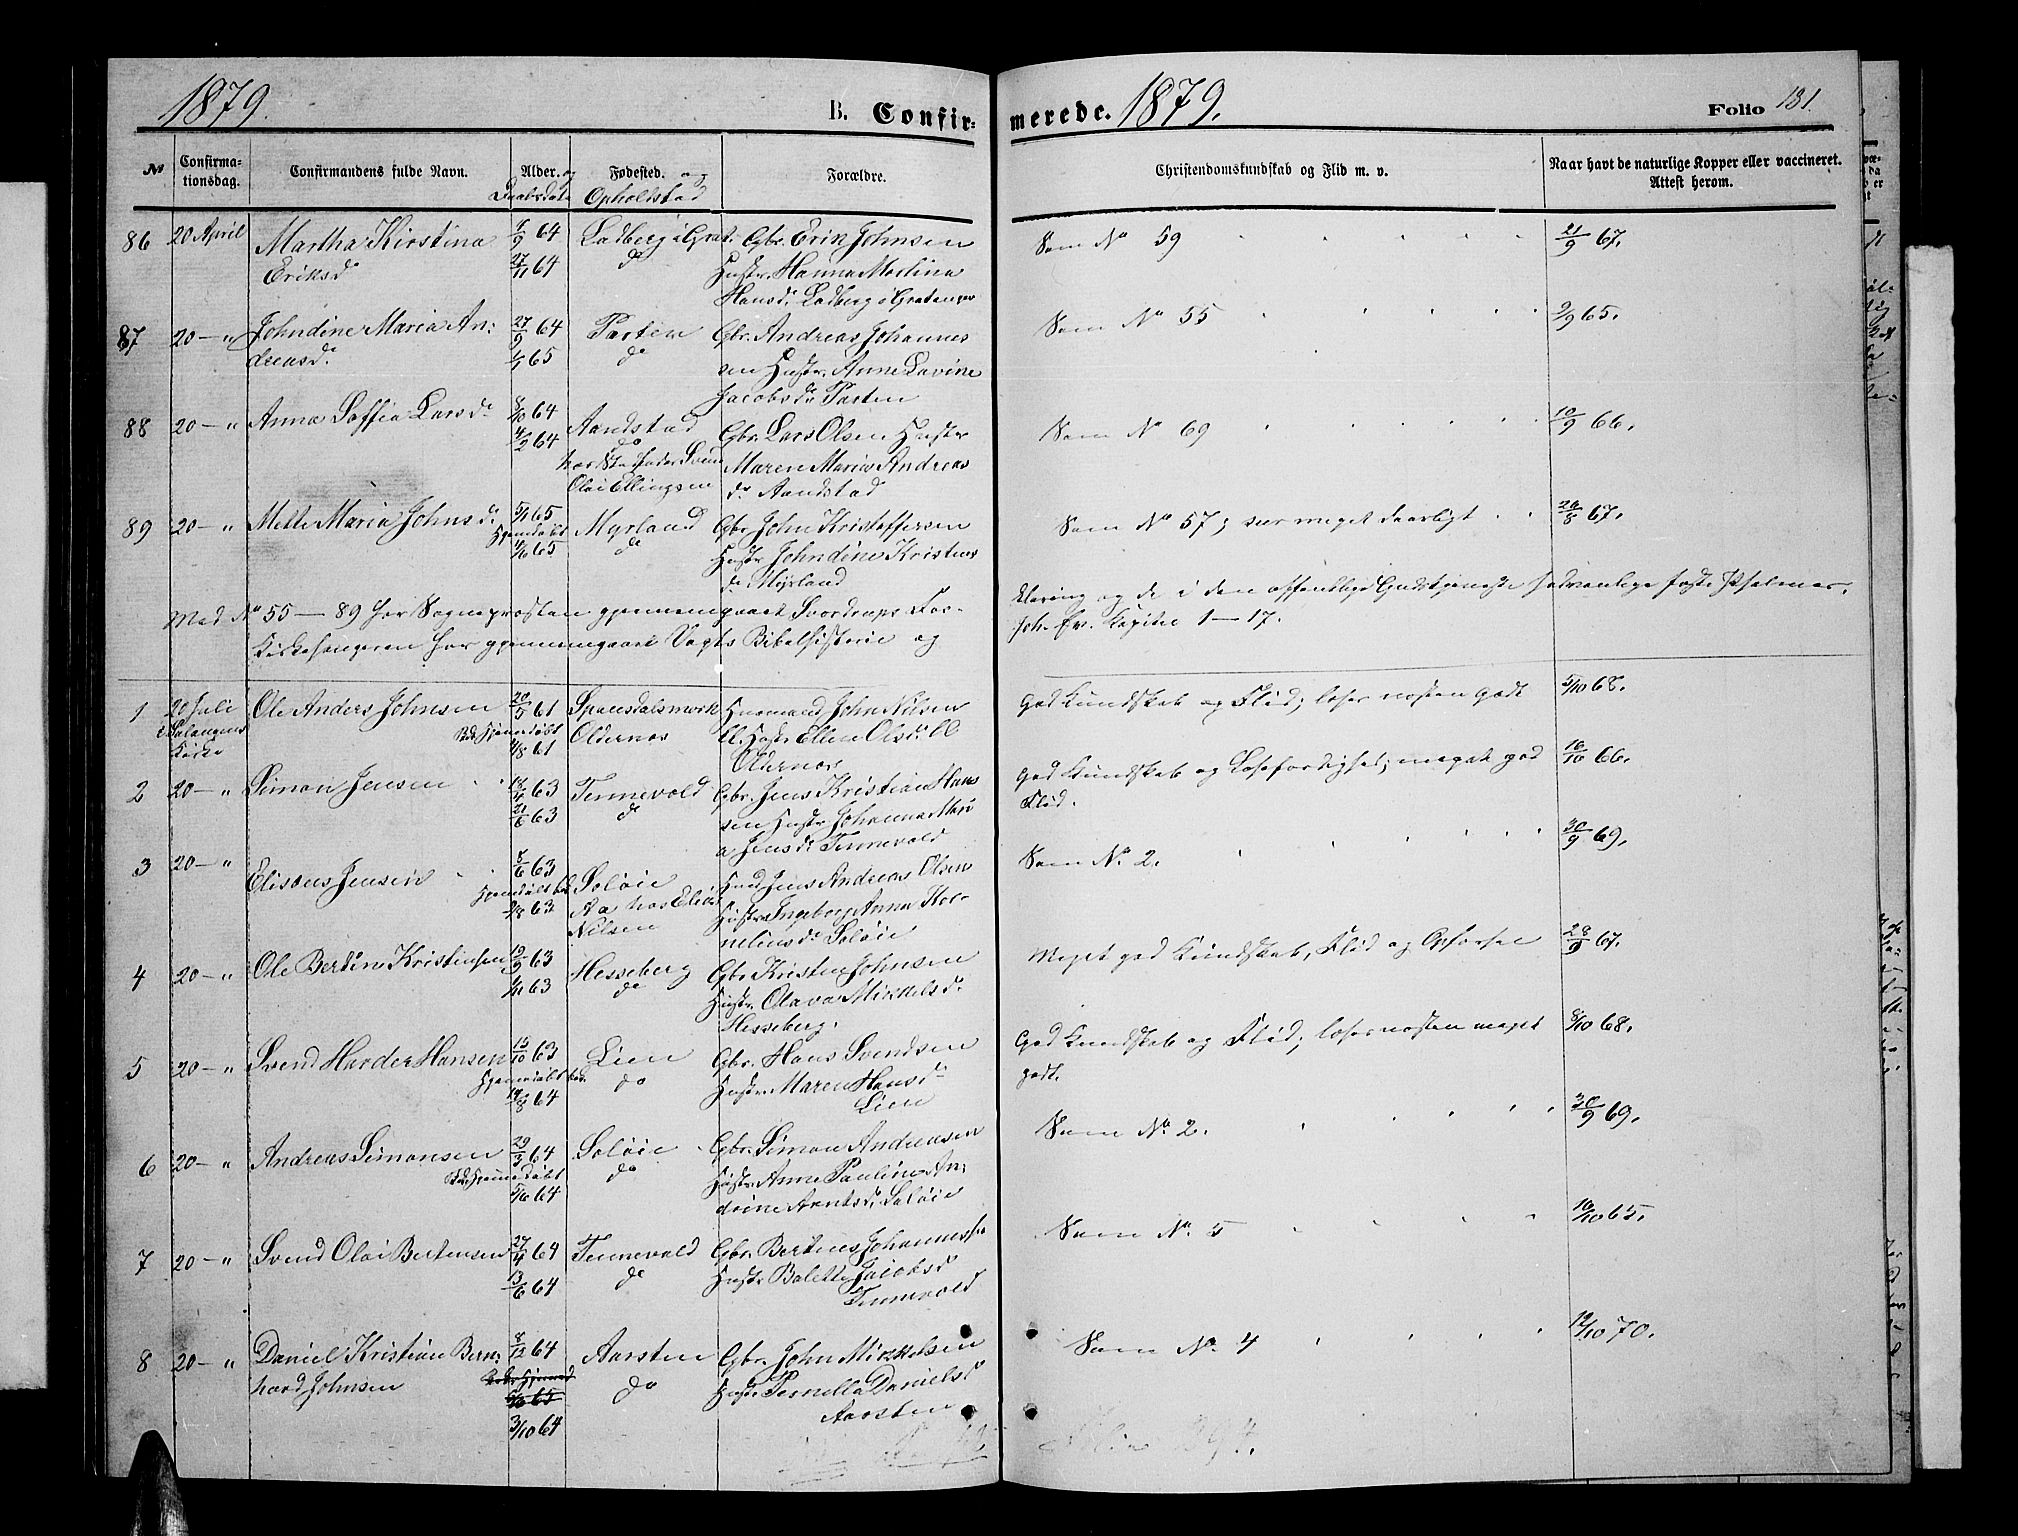 1879.
B. Confir-
merede. 1879.
Folio 131.
No
Confirma-
tionsdag.
Confirmandens fulde Navn.
Alder. og
Daabsdato
Fødested. og
Opholdsted
Forældre.
Christendomskundskab og Flid m. v.
Naar havt de naturlige Kopper eller vaccineret.
Attest herom.
86 20 April Martha Kirstina
Eriksd.
9 64
27/11 64
Ladberg i Grat.
do
Gbr. Erik Johnsen
Hustr. Hanna Martina
Hansd. Ladberg i Gratangen
Som No 59
21/9 67.
87 20 — " Johndine Maria An-
dreasd.
27/9 64
1/1 65
Parten
do
Gbr. Andreas Johannes
sen Hustr. Anne Lavine
Jacobsd. Parten
Som No 55
2/9 65.
88 20 — " Anna Soffia Larsd.
8/10 64
64
Aandstad
do
hos Stedfader Svend
Oloi Ellingsen
Gbr. Lars Olsen Hustr
Maren Maria Andreas
d. Aandstad
Som No 69
10/9 66.
89 20 — " Mette Maria Johnsd.
5/1 65
Hjemdøbt
65
Myrland
do
Gbr. John Kristoffersen
Hustr. Johndine Kristens
d. Myrland
Som No 57; svar meget daarligt
28/8 67.
Med No 55 — 89 har Sognepresten gjennemgaaet Sverdrups For-
klaring og de i den offentlige Gudstjeneste sædvanlige faste Psalmer,
Kirkesangeren har gjennemgaaet Vogts Bibelhistorie og
Joh. Ev. Kapitel 1 — 17.
1 20 Juli
i Salangens
Kirke
Ole Anders Johnsen
20/5 61
Hjemdøbt
4/8 61
Spansdalsmark
Oldernes
Huusmand John Nilsen
ll. Hustr Ellen Olsd. ll
Oldernes
God Kundskab og Flid; læser næsten godt
5/10 68.
2 20 — " Simon Jensen
63
21/6 63
Tennevold
do
Gbr. Jens Kristian Hans
sen Hustr. Johanna Mari
a Jensd. Tennevold
God Kundskab og Læsefærdighed; meget god
Flid.
16/10 66.
3 20 — " Elisæus Jensen
8/6 63
Hjemdøbt
8 63
Soløie
Aa hos Elias
Nilsen
Jens Andreas Olsen
Hustr. Ingeborg Anna Kor-
neliusd. Soløie
Som No 2.
30/9 69.
4 20 — " Ole Bertin Kristensen
19/9 63
1/11 63
Hesseberg
do
Gbr Kristen Johnsen
Hustr. Olava Mikkelsd.
Hesseberg.
Meget god Kundskab, Flid og Opførsel
28/9 67.
5 20 — " Svend Harder Hansen
15/10 63
Hjemdøbt
14/8 64
Lien
do
Gbr. Hans Svendsen
Hustr. Maren Hansd.
Lien
God Kundskab og Flid; læser næsten meget
godt.
8/10 68.
6 20 — " Andreas Simonsen
29/3 64
Hjemmedøbt
5/6 64
Soløie
do
Gbr. Simon Andreasen
Hustr. Anne Pauline An-
drine Arntsd. Soløie
Som No 2.
30/9 69.
7 20 — " Svend Oloi Bertensen
27/4 64
13/6 64
Tennevold
do
Gbr. Berteus Johanness.
Hustr Balette Jacobsd
Tennevold
Som No 5
10/10 65.
8 20 — " Daniel Kristian Bern-
hard Johnsen
8/12 64
65
3/10 64
Aarsten
do
Gbr. John Mikkelsen
Hustr. Pernella Danielsd
Aarsten
Som No 4
12/10 70.